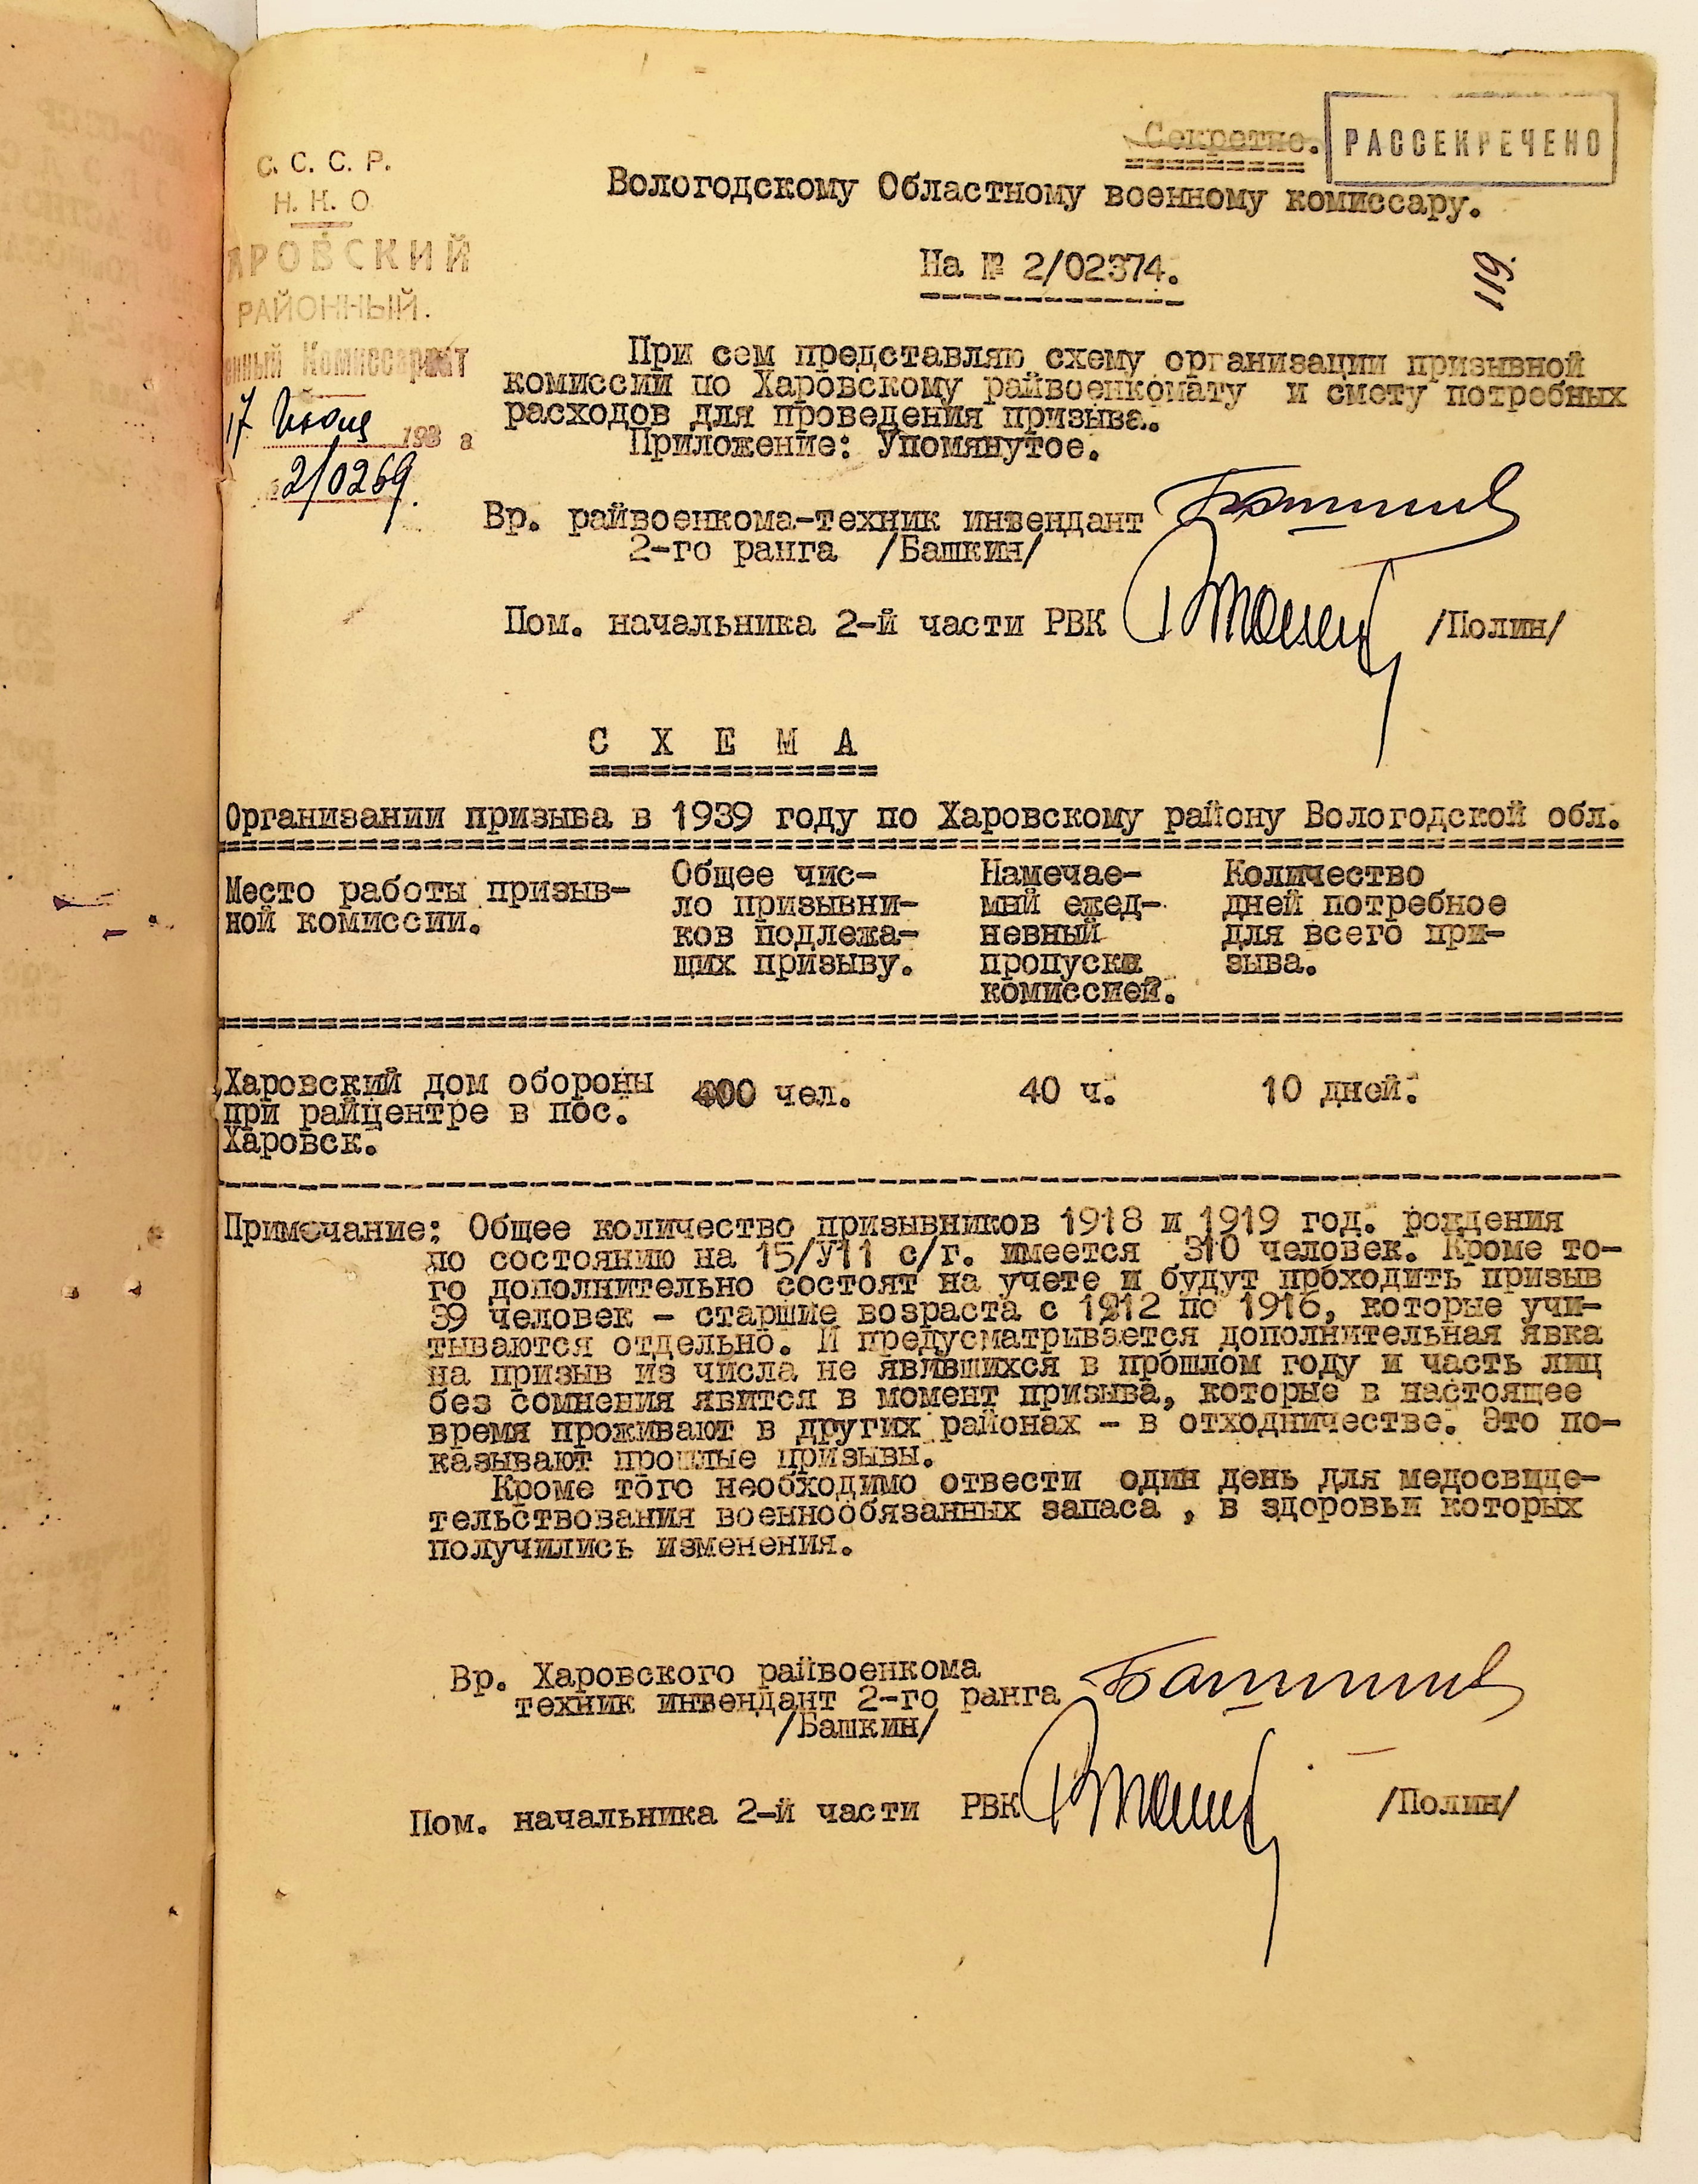 Секретно.
РАССЕКРЕЧЕНО
С. С. С. Р.
Н. К. О
АРОВСКИЙ
РАЙОННЫЙ.
енный Комиссариат
17 Июля 193 г
2/0269.
Вологодскому Областному военному комиссару.
На № 2/02374.
119.
При сем представляю схему организации призывной
комиссии по Харовскому райвоенкомату и смету потребных
расходов для проведения призыва.
Приложение: Упомянутое.
Вр. райвоенкома-техник интендант
2-го ранга /Башкин/
Пом. начальника 2-й части РВК /Полин/
С Х Е М А
Организации призыва в 1939 году по Харовскому району Вологодской обл.
Место работы призыв-
ной комиссии.
Общее чис-
ло призывни-
ков подлежа-
щих призыву.
Намечае-
мый ежед-
невный
пропуска
комиссией.
Количество
дней потребное
для всего при-
зыва.
Харовский дом обороны
при райцентре в пос.
Харовск.
400 чел.
40 ч.
10 дней.
Примечание: Общее количество призывников 1918 и 1919 год. рождения
по состоянию на 15/У11 с/г. имеется 310 человек. Кроме то-
го дополнительно состоят на учете и будут проходить призыв
39 человек - старшие возраста с 1912 по 1916, которые учи-
тываются отдельно. И предусматривается дополнительная явка
на призыв из числа не явившихся в прошлом году и часть лиц
без сомнения явится в момент призыва, которые в настоящее
время проживают в других районах - в отходничестве. Это по-
казывают прошлые призывы.
Кроме того необходимо отвести один день для медосвиде-
тельствования военнообязанных запаса , в здоровьи которых
получились изменения.
Вр. Харовского райвоенкома
техник интендант 2-го ранга
/Башкин/
Пом. начальника 2-й части РВК /Полин/